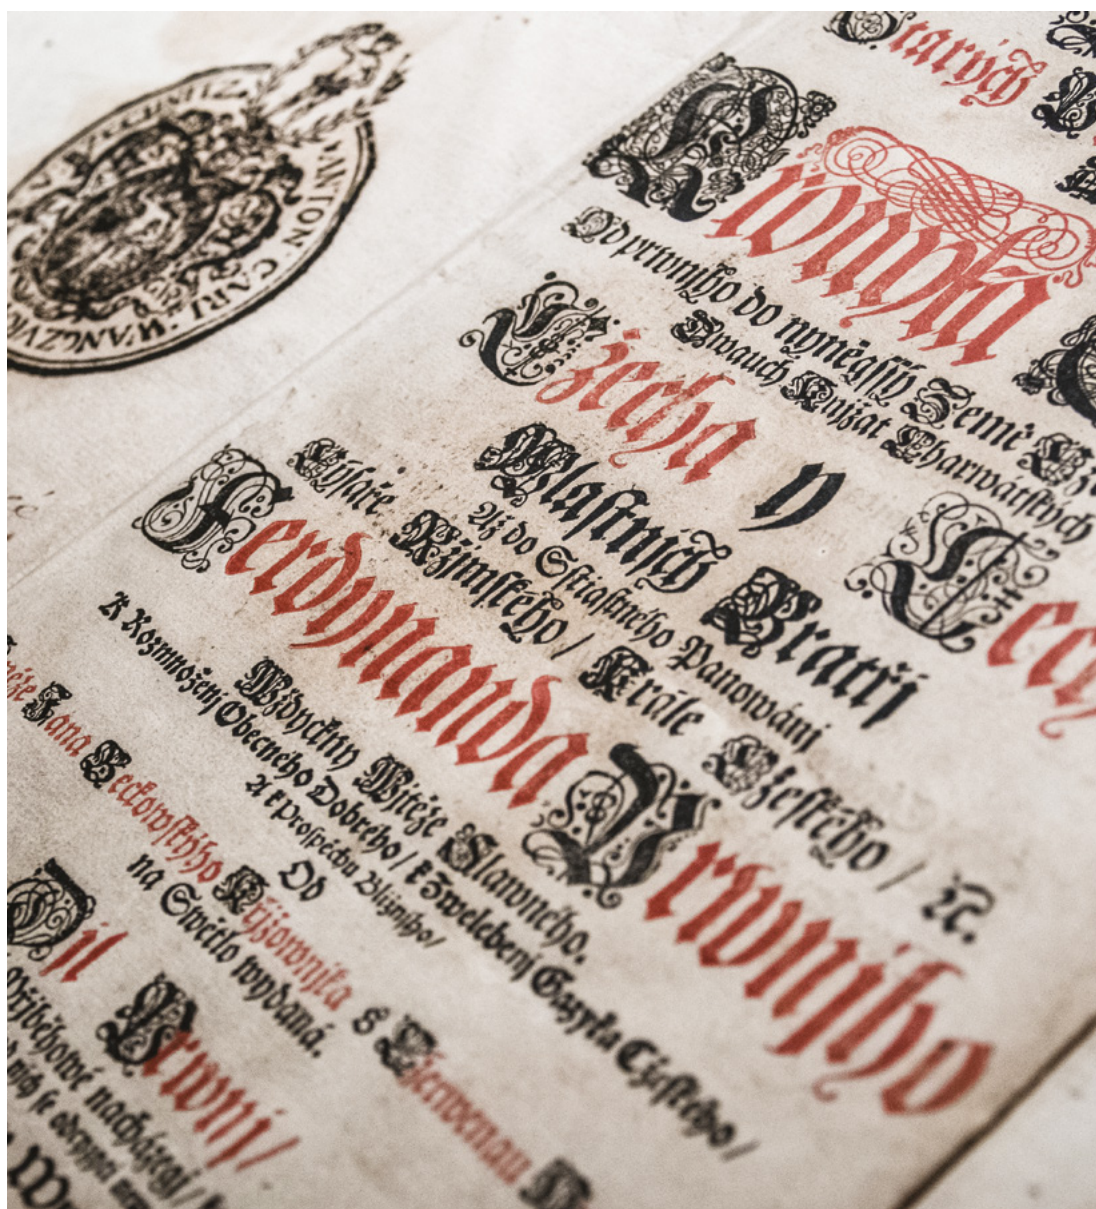 ANTON · CARI · WANCZVR
Starých
Kronyka
Od prwnjho do nyněgssý Země
Dwauch Knjžat Charwátských
Czecha y Lech
Wlastnjch Bratřj
Až do Sstiastného Panowánj
Cýsaře Ržjmského / Krále Czeského / ꝛc.
Ferdynanda Prwnjho
Wždyckny Witěze Slawného.
K Rozmnoženj Obecného Dobrého / k Zwelebenj Gazyka Czeského /
A k Prospěchu Bližnjho /
Od
Jana Beckowského Křjžownjka s Czerwenau
na Swětlo wydaná.
Djl Prwnj /
nacházegj /